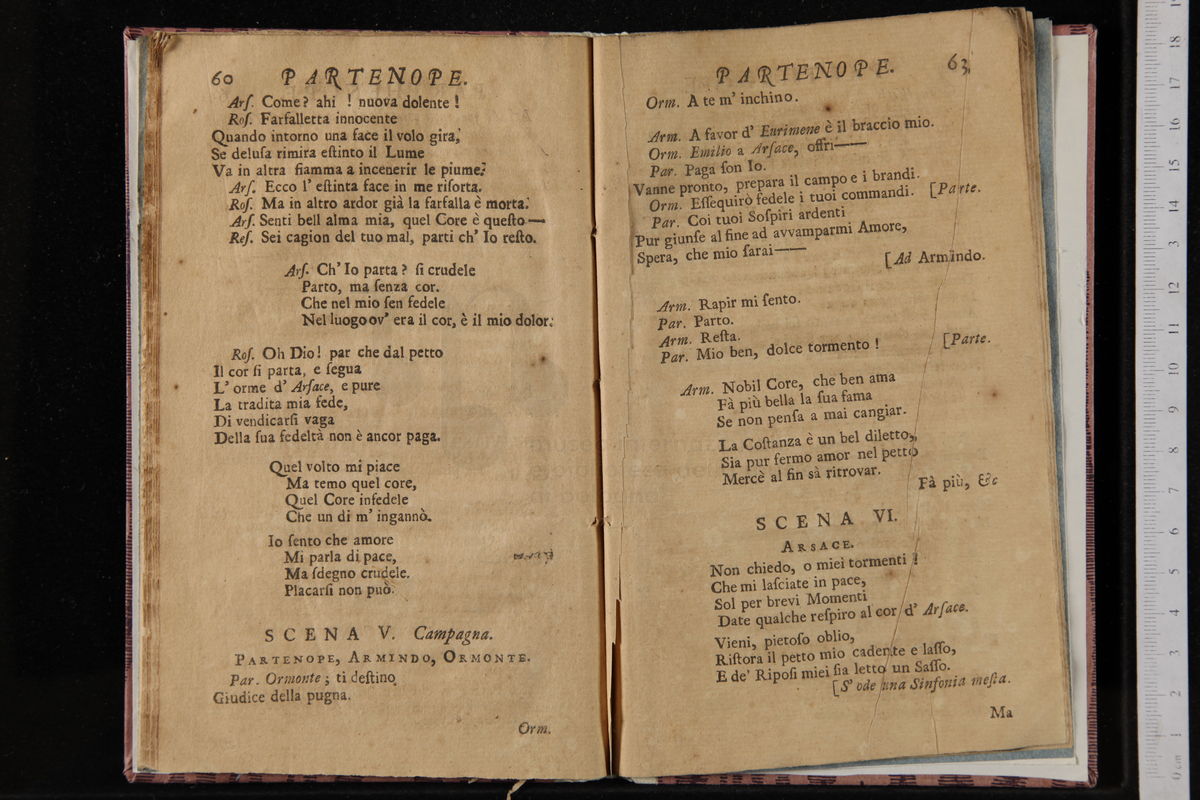 60 PARTENOPE.
Arſ. Come? ahi ! nuova dolente !
Roſ. Farfalletta innocente
Quando intorno una face il volo gira,
Se deluſa rimira eſtinto il Lume
Va in altra fiamma a incenerir le piume.
Arſ. Ecco l' eſtinta face in me riſorta.
Roſ. Ma in altro ardor già la farfalla è morta.
Arſ. Senti bell alma mia, quel Core è queſto—
Reſ. Sei cagion del tuo mal, parti ch' Io reſto.
Arſ. Ch' Io parta ? ſi crudele
Parto, ma ſenza cor.
Che nel mio ſen fedele
Nel luogo ov' era il cor, è il mio dolor.
Roſ. Oh Dio! par che dal petto
Il cor ſi parta, e ſegua
L' orme d' Arſace, e pure
La tradita mia fede,
Di vendicarſi vaga
Della ſua fedeltà non è ancor paga.
Quel volto mi piace
Ma temo quel core,
Quel Core infedele
Che un di m' ingannò.
Io ſento che amore
Mi parla di pace,
Ma ſdegno crudele.
Placarſi non può.
SCENA V. Campagna.
PARTENOPE, ARMINDO, ORMONTE.
Par. Ormonte ; ti deſtino
Giudice della pugna.
Orm.
PARTENOPE. 63
Orm. A te m' inchino.
Arm. A favor d' Eurimene è il braccio mio.
Orm. Emilio a Arſace, offri——
Par. Paga ſon Io.
Vanne pronto, prepara il campo e i brandi.
Orm. Eſſequirò fedele i tuoi commandi. [Parte.
Par. Coi tuoi Soſpiri ardenti
Pur giunſe al fine ad avvamparmi Amore,
Spera, che mio ſarai——
[Ad Armindo.
Arm. Rapir mi ſento.
Par. Parto.
Arm. Reſta.
Par. Mio ben, dolce tormento ! [Parte.
Arm. Nobil Core, che ben ama
Fà più bella la ſua fama
Se non penſa a mai cangiar.
La Coſtanza è un bel diletto,
Sia pur fermo amor nel petto
Mercè al fin sà ritrovar.
Fà più, &c
SCENA VI.
ARSACE.
Non chiedo, o miei tormenti !
Che mi laſciate in pace,
Sol per brevi Momenti
Date qualche reſpiro al cor d' Arſace.
Vieni, pietoſo oblio,
Riſtora il petto mio cadente e laſſo,
E de' Ripoſi miei ſia letto un Saſſo.
[S' ode una Sinfonia meſta.
Ma